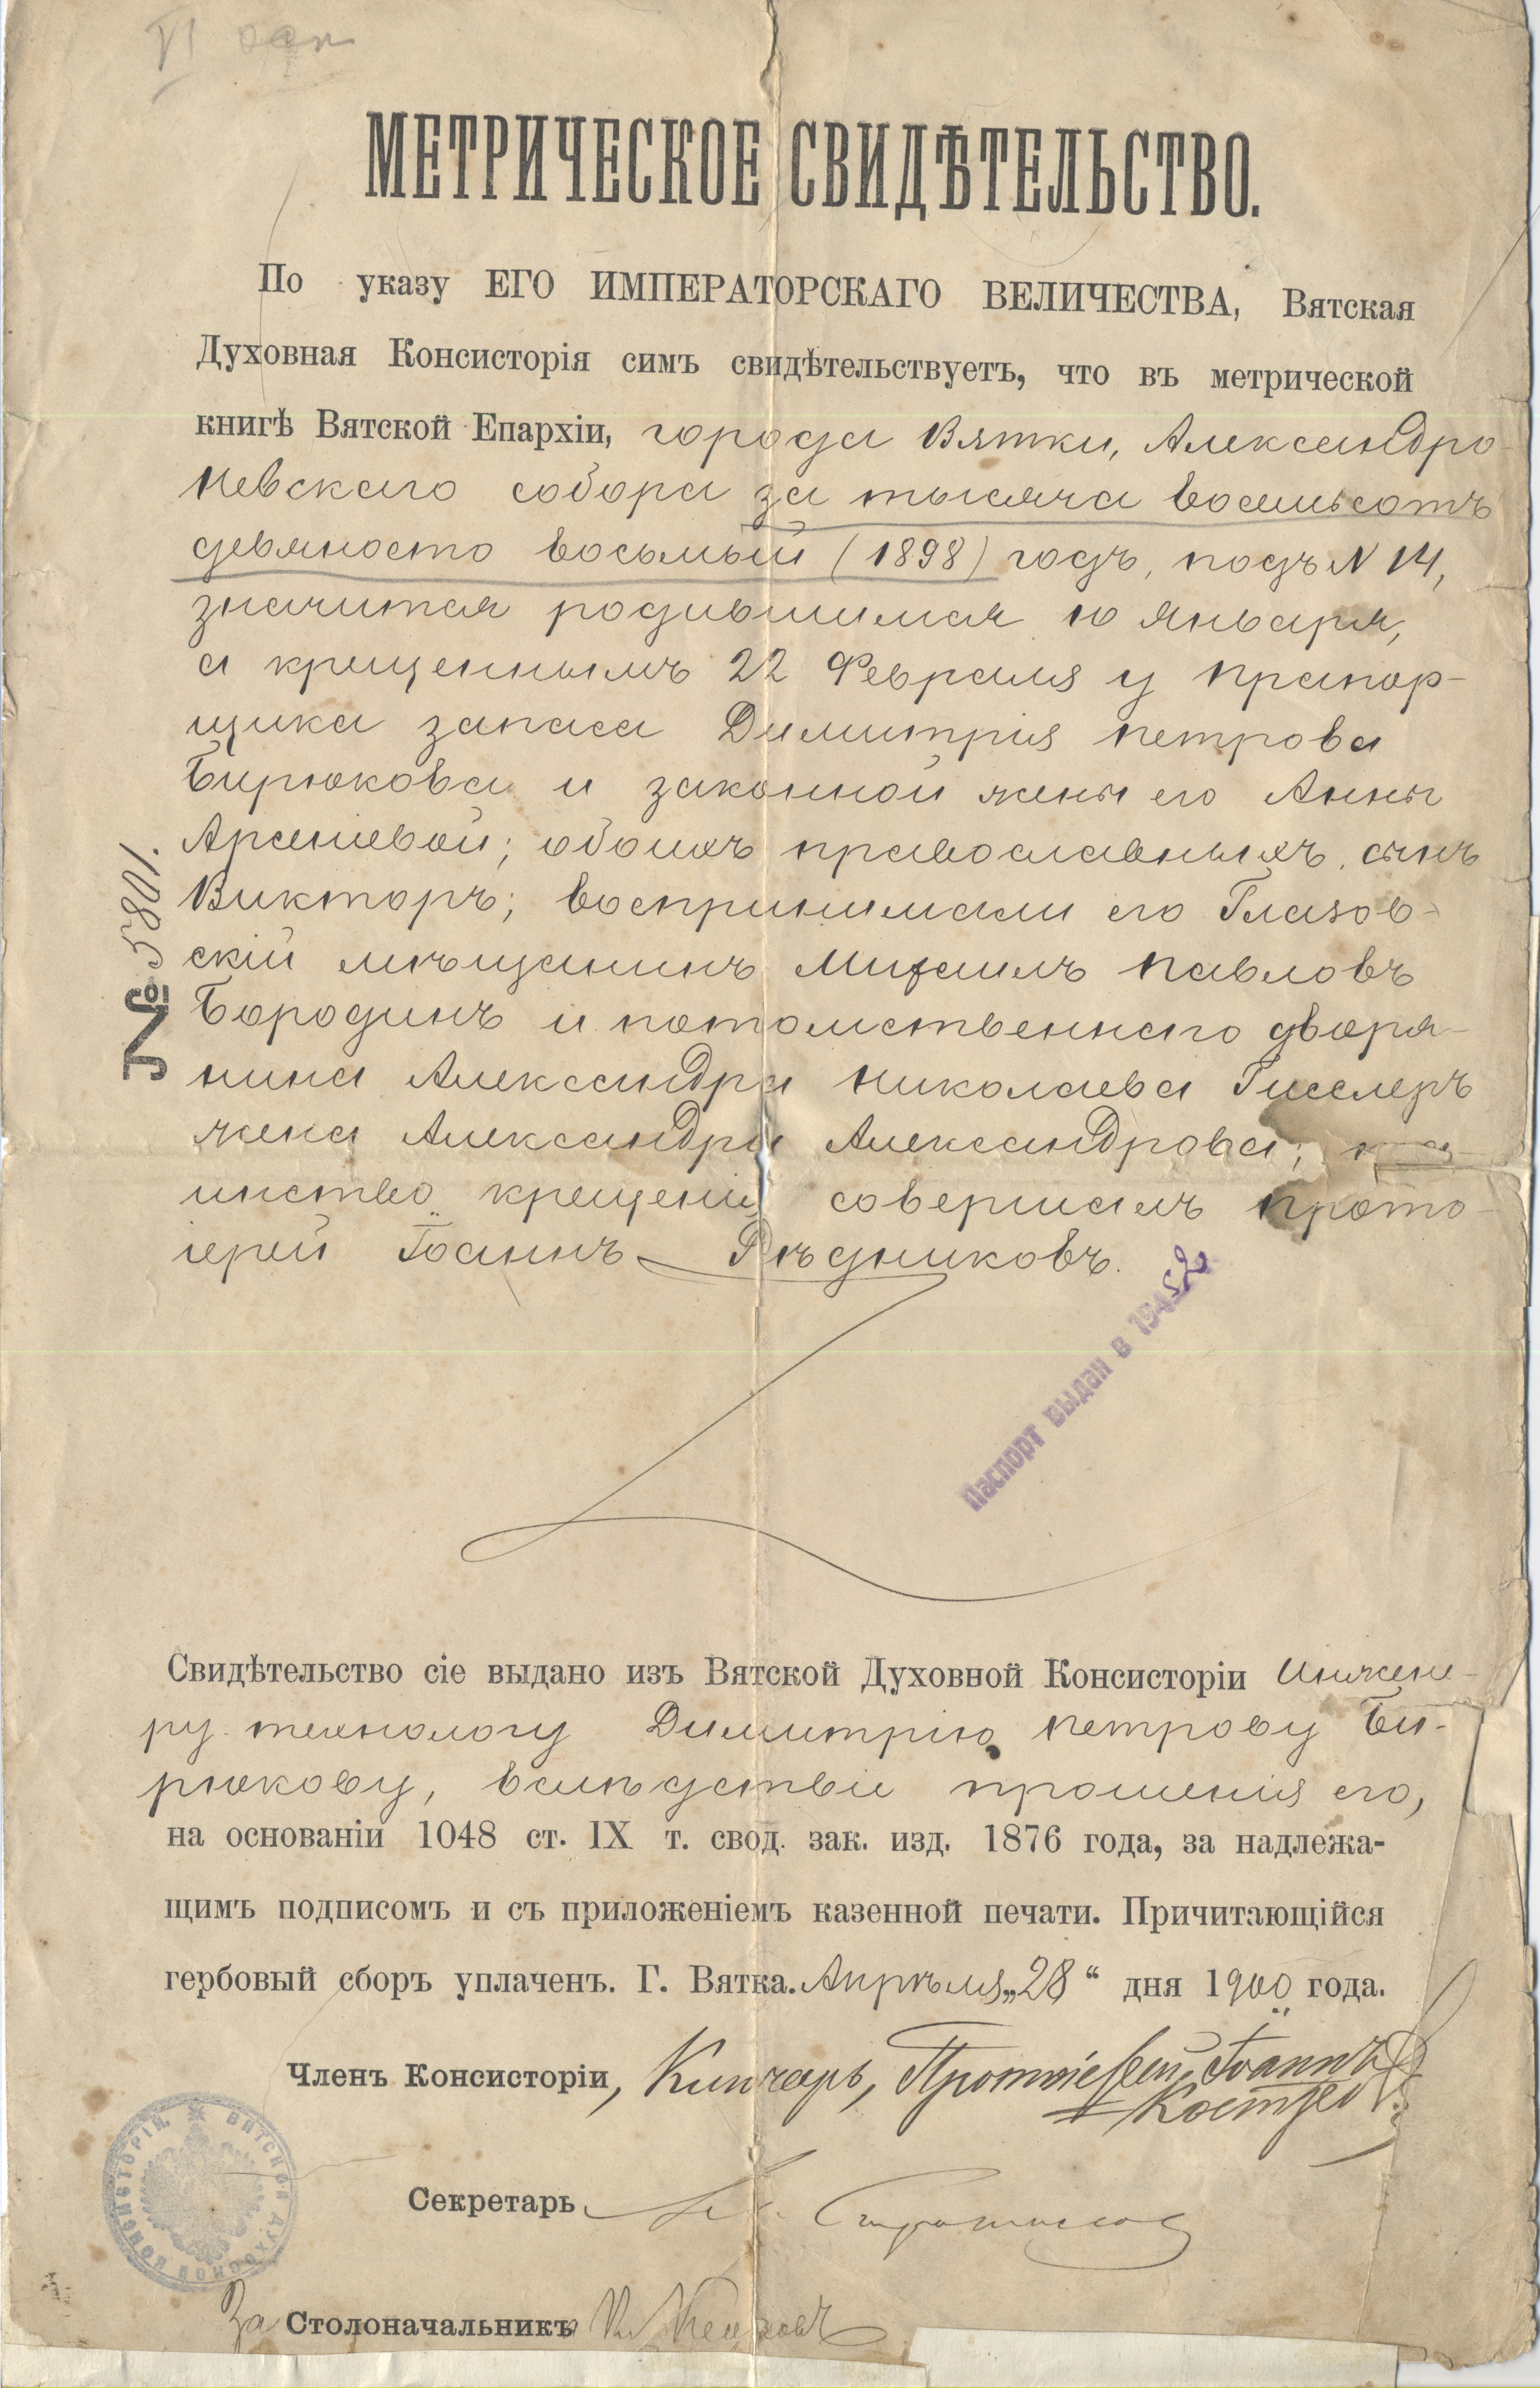 VI
МЕТРИЧЕСКОЕ СВИДѢТЕЛЬСТВО.
По указу ЕГО ИМПЕРАТОРСКАГО ВЕЛИЧЕСТВА, Вятская
Духовная Консисторія симъ свидѣтельствуетъ, что въ метрической
книгѣ Вятской Епархіи, города Вятки, Александро-
Невскаго собора за тысяча восемьсотъ
девяносто восьмый (1898) годъ, подъ № 14,
значится родившимся 10 Января,
а крещеннымъ 22 Февраля у прапор-
щика запаса Димитрія Петрова
Бирюкова и законной жены его Анны
Арсеніевой; обоихъ православныхъ, сынъ
Викторъ; воспринимали его Глазов-
скій мѣщанинъ Михаилъ Павловъ
Бородинъ и потомственнаго дворя-
нина Александра Николаева Гисслеръ
жена Александра Александрова; та-
инство крещенія совершалъ прото-
іерей Іоаннъ Рѣдниковъ.
№ 5801.
Паспорт выдан в 1945
Свидѣтельство сіе выдано изъ Вятской Духовной Консисторіи Инжене-
ру технологу Димитрію Петрову Би-
рюкову, вслѣдствіе прошенія его,
на основаніи 1048 ст. IX т. свод. зак. изд. 1876 года, за надлежа-
щимъ подписомъ и съ приложеніемъ казенной печати. Причитающійся
гербовый сборъ уплаченъ. Г. Вятка. Апрѣля „28“ дня 1900 года.
Членъ Консисторіи, Ключарь, Протоіерей Іоаннъ
Секретарь
За Столоначальникъ
ВЯТСКОЙ ДУХОВНОЙ КОНСИСТОРІИ